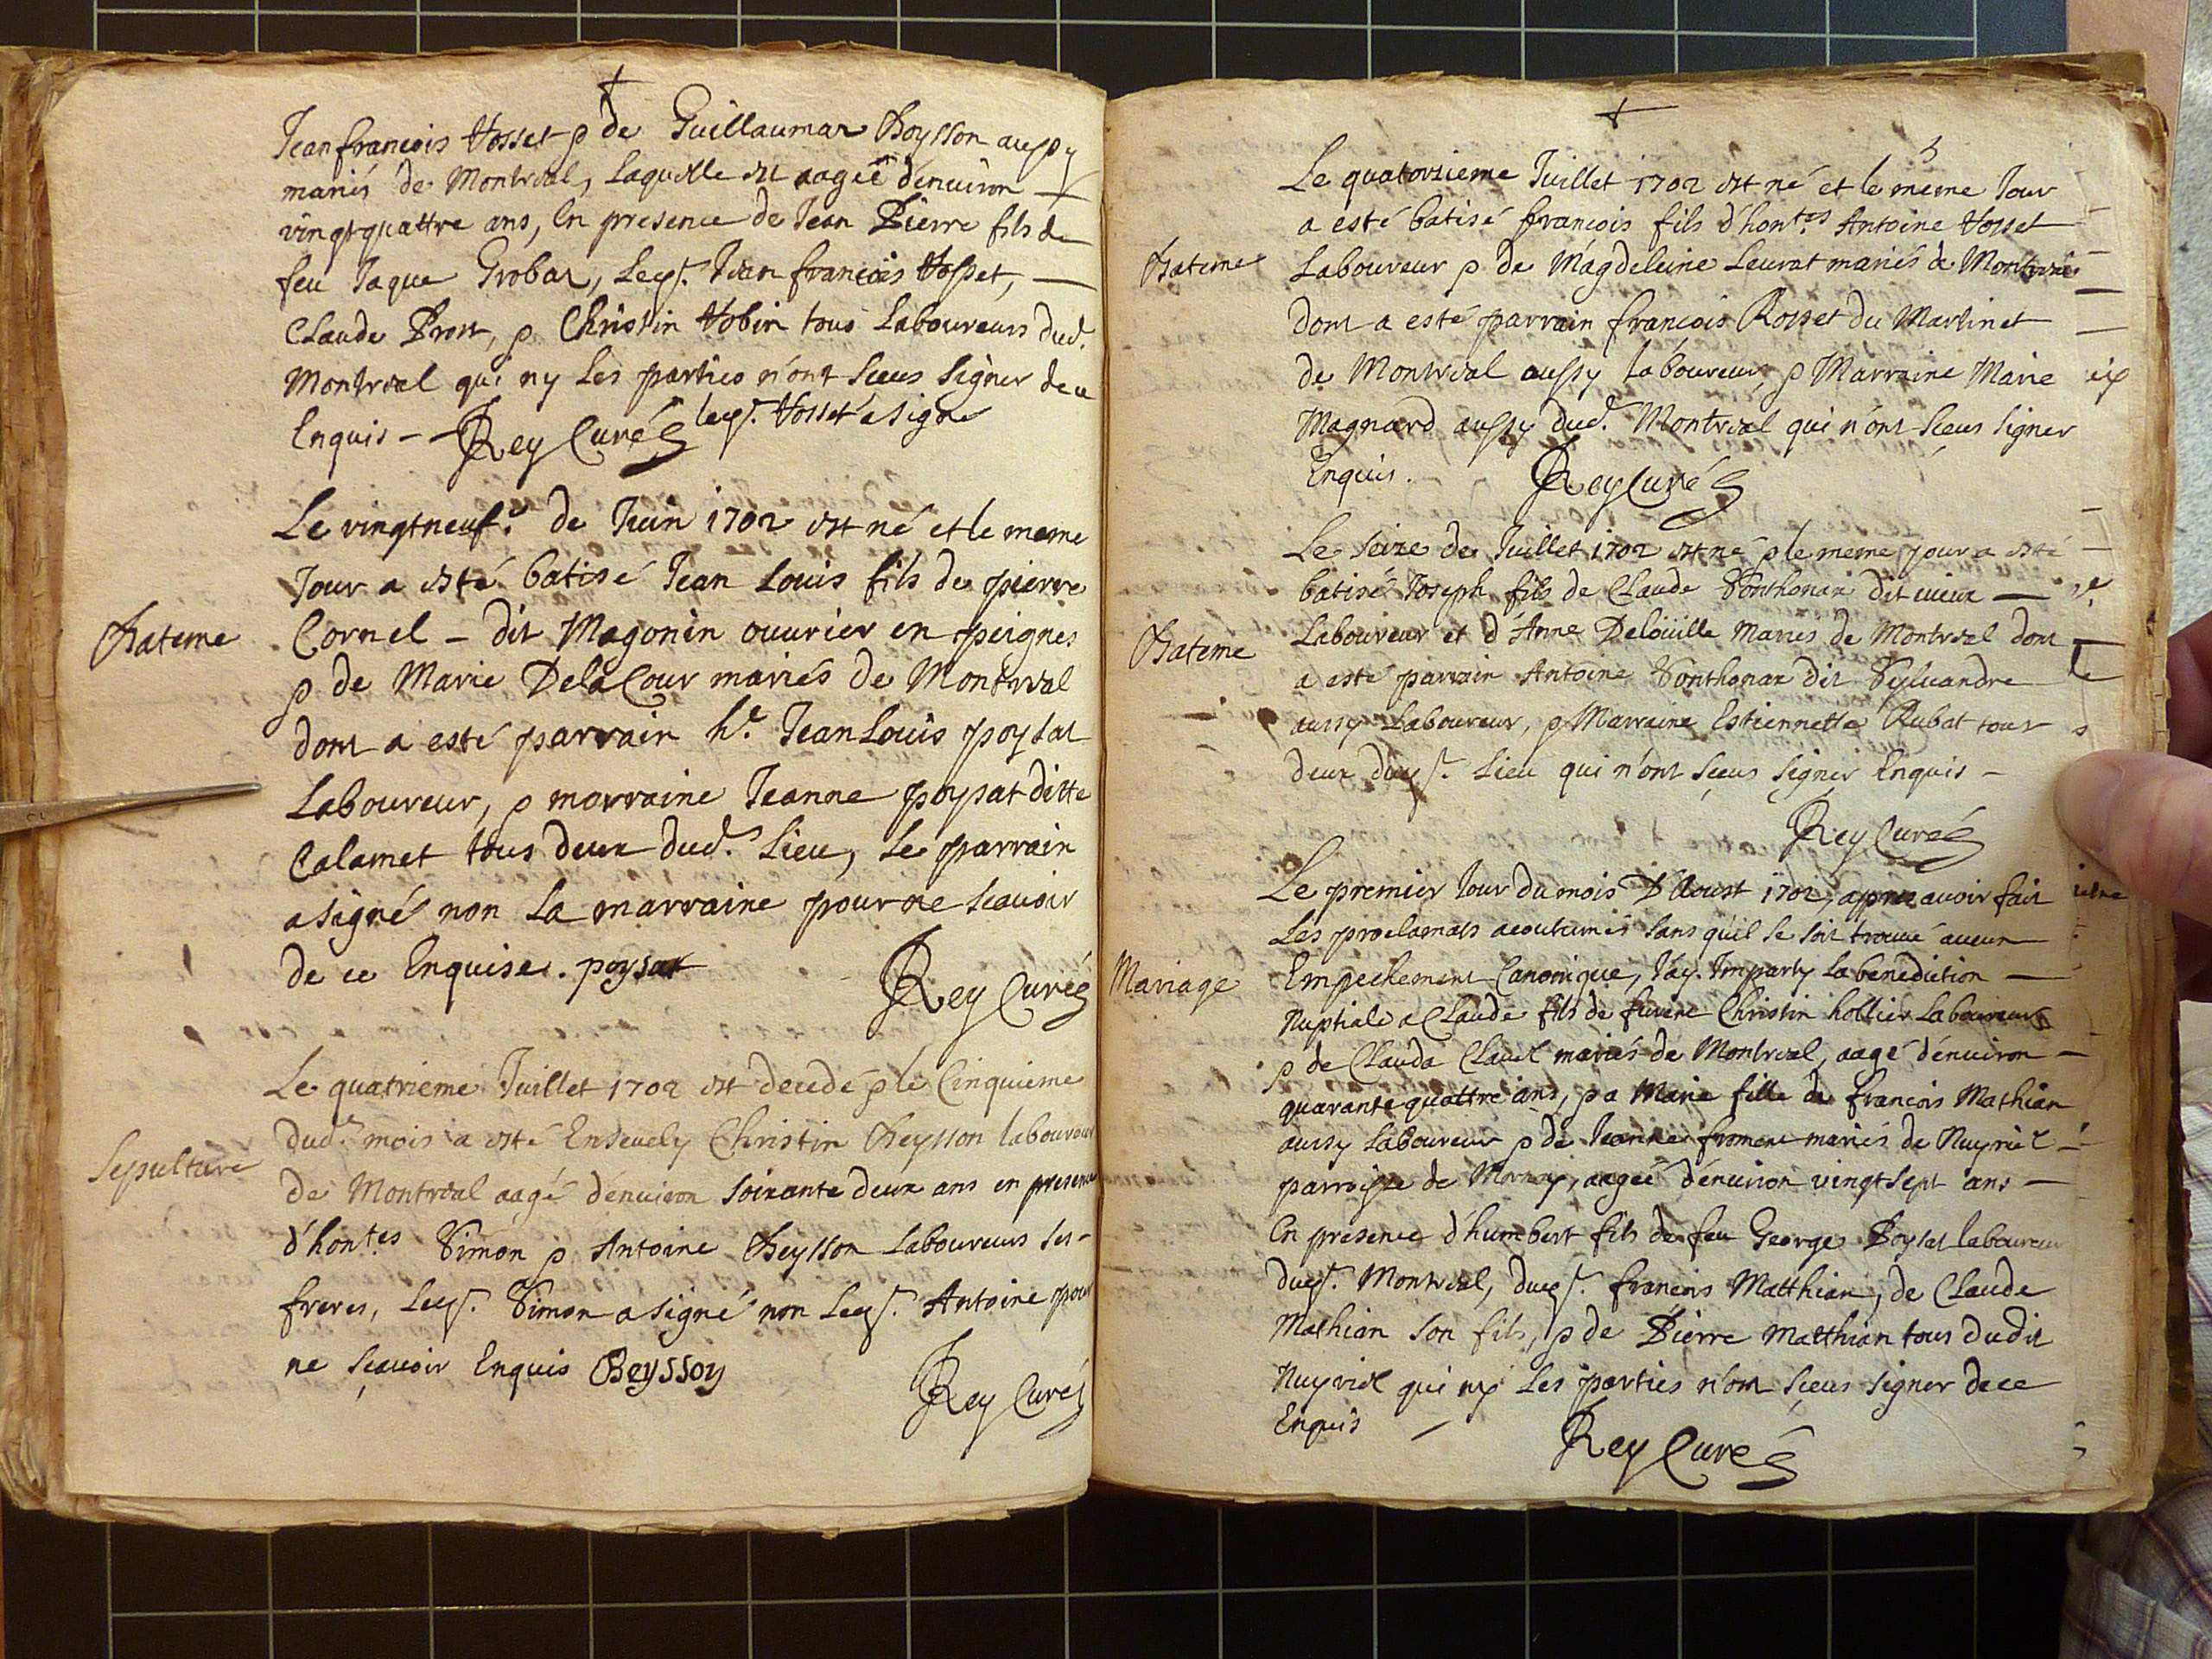 Jean francois Vosset p de Guillaumaz Boysson aussy
mariés de Montreal, laquelle est aagée d'environ
vingtquattre ans, En presence de Jean Pierre fils de
feu Jaque Grobaz, Leqs. Jean francois Vosset,
Claude Prost, p Christin Vobin tous Laboureurs dud.
Montreal qui ny Les parties n'ont sceus signer de ce
Enquis - - Rey Curé leqs. Vosset a signé
Le vingtneuf.e de Juin 1702 est né et le meme
Jour a esté batisé Jean Louis fils de pierre
Bateme
Cornel - dit Magonin ouvrier en peignes
p de Marie DelaCour mariés de Montreal
dont a esté parrain h.e Jean Louis poysat
Laboureur, p marraine Jeanne poysat ditte
Calamet tous deux dud. Lieu, Le parrain
a signé non La marraine pour ne scavoir
de ce Enquise. poysat
Rey Curé
Le quatrieme Juillet 1702 est decedé p le Cinquieme
dud. mois a esté Ensevely Christin Beysson laboureur
Sepulture
de Montreal aagé d'environ soixante deux ans en presence
d'hon.tes Simon p Antoine Beysson Laboureurs ses
freres, Leqs. Simon a signé non Leqs. Antoine pour
ne sçavoir Enquis Beysson
Rey Curé
3
Le quatorzieme Juillet 1702 est né et le meme Jour
a esté batisé francois fils d'hon.tes Antoine Vosset
Bateme
Laboureur p de Magdeleine Leurat mariés de Montreal
dont a esté parrain francois Rosset du Martinet
de Montreal aussy laboureur, p Marraine Marie
Magnard aussy dud. Montreal qui n'ont sceus signer
Enquis. Rey Curé
Le seize de Juillet 1702 est né p le meme jour a esté
batisé Joseph fils de Claude Ponthonax dit vieux
Bateme
Laboureur et d'Anne Delouille Mariés de Montreal dont
a esté parrain Antoine Ponthonax dit Sylvandre
aussy Laboureur, p Marraine Estiennette Rubat tous
deux duqs. Lieu qui n'ont sçeus signer Enquis -
Rey Curé
Le premier Jour du mois D'Aoust 1702, aprez avoir fait
Les proclamats acoutumés sans qu'il se soit trouvé aucun
Mariage
Empechement Canonique, J'ay Imparty La benediction
Nuptiale a Claude fils de Christin hollier Laboureur
p de Clauda Clavel mariés de Montreal, aagé d'environ
quarante quattre ans, p a Marie fille de francois Mathian
aussy Laboureur p de Jeanne froment mariés de Nuyriel
parroisse de Mornay, aagée d'environ vingt sept ans
En presence d'humbert fils de feu George Poysat laboureur
duqs. Montreal, duqs. francois Matthian, de Claude
Mathian son fils, p de Pierre Matthian tous dudit
Nuyriel qui ny Les parties n'ont sçeus signer de ce
Enquis
Rey Curé